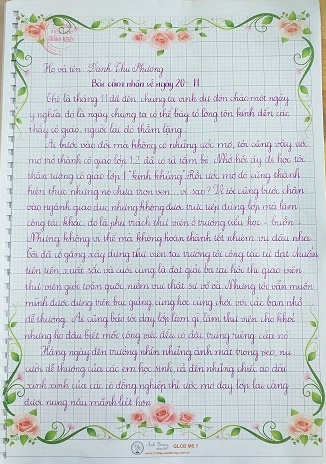 Họ và tên: Danh Thu Phương
Bài cảm nhận về ngày 20 - 11
Thế là tháng 11 đã đến, chúng ta vinh dự đón chào một ngày
ý nghĩa đó là ngày chúng ta có thể bày tỏ lòng tôn kính đến các
thầy cô giáo, người lái đò thầm lặng.
Ai bước vào đời mà không có những ước mơ, tôi cũng vậy ước
mơ trở thành cô giáo lớp 1,2 đã có từ tấm bé. Nhớ hồi ấy đi học tôi
thần tượng cô giáo lớp 1 "kinh khủng". Rồi ước mơ đó cũng thành
hiện thực nhưng nó chưa trọn vẹn...vì sao? Vì tôi cũng bước chân
vào ngành giáo dục nhưng không được trực tiếp đứng lớp mà làm
công tác khác đó là phụ trách thư viện ở trường tiểu học - buồn -
Nhưng không vì thế mà không hoàn thành tốt nhiệm vụ đâu nha.
Tôi đã cố gắng xây dựng thư viện tại trường tôi công tác từ đạt chuẩn,
tiên tiến, xuất sắc và cuối cùng là đạt giải ba tại hội thi giáo viên
thư viện giỏi toàn quốc, niềm vui thật sự vỡ oà. Nhưng tôi vẫn muốn
mình được đứng trên bục giảng, cùng học cùng chơi với các bạn nhỏ
dễ thương. Ai cũng bảo tôi dạy lớp làm gì làm thư viện cho khoẻ
nhưng họ đâu biết mỗi công việc đều có đặc trưng riêng của nó.
Hằng ngày đến trường nhìn những ánh mắt trong veo, nụ
cười dễ thương của các em học sinh, cả đến những chiếc áo dài
xinh xinh của các cô đồng nghiệp thì ước mơ dạy lớp lại càng
dưới nung nấu mãnh liệt hơn.
GLCĐ M5.1